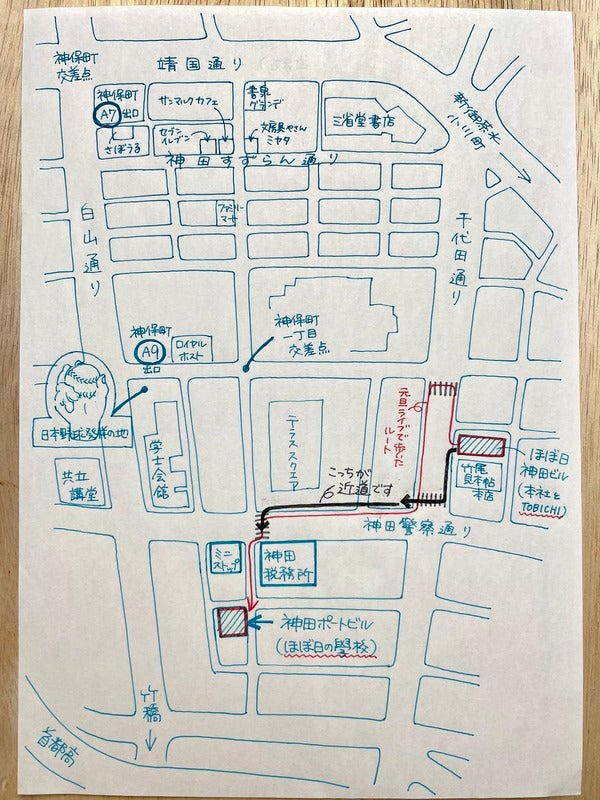 神保町
交差点
靖国通り
神保町
A7 出口
サンマルクカフェ
書泉
グランデ
三省堂書店
新御茶水
小川町
さぼうる
セブン
イレブン
文房具やさん
ミヤタ
神田すずらん通り
白山通り
ファミリー
マート
千代田通り
神保町
A9
出口
ロイヤル
ホスト
神保町
一丁目
交差点
日本野球発祥の地
学士会館
テラススクエア
元旦ライブで歩いた
ルート
ほぼ日
神田ビル
(本社と
TOBICHI)
竹尾
見本帖
本店
共立
講堂
こっちが
近道です
神田警察通り
ミニ
ストップ
神田
税務所
神田ポートビル
(ほぼ日の學校)
竹橋
首都高